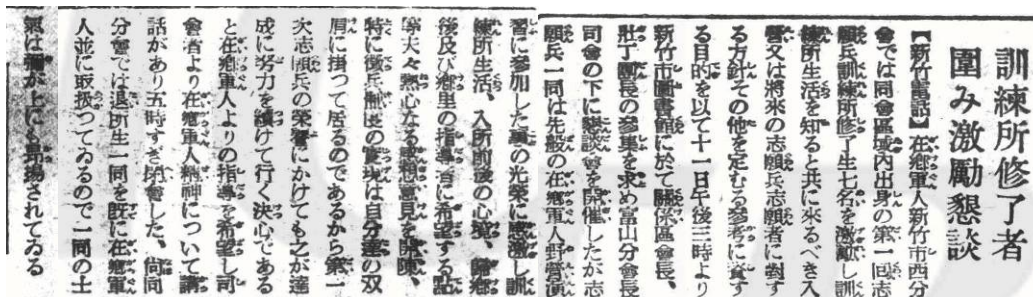 訓練所修了者
圍み激勵懇談
【新竹電話】在鄕軍人新竹市西分
會では同會區域內出身の第一回志
願兵訓練所修了生七名を激勵し訓
練所生活を知ると共に來るべき入
營又は將來の志願兵志願者に對す
る方針その他を定むる參考に資す
る目的を以て十一日午後三時より
新竹市圖書館に於て關係區會長、
壯丁團長の參集を求め富山分會長
司會の下に懇談會を開催したが志
願兵一同は先般の在鄕軍人野營演
習に參加した事の光榮に感激し訓
練所生活、入所前後の心境、歸鄕
後及び鄕里の指導者に希望する點
等夫々熱心なる感想意見を開陳、
特に徵兵制度の實現は自分達の双
肩に掛つて居るのであるから第一
次志願兵の榮譽にかけても之が達
成に努力を續けて行く決心である
と在鄕軍人よりの指導を希望し司
會者より在鄕軍人精神について講
話があり五時すぎ閉會した、尙同
分會では退所生一同を旣に在鄕軍
人並に取扱つてゐるので一同の士
氣は彌が上にも昂揚されてゐる